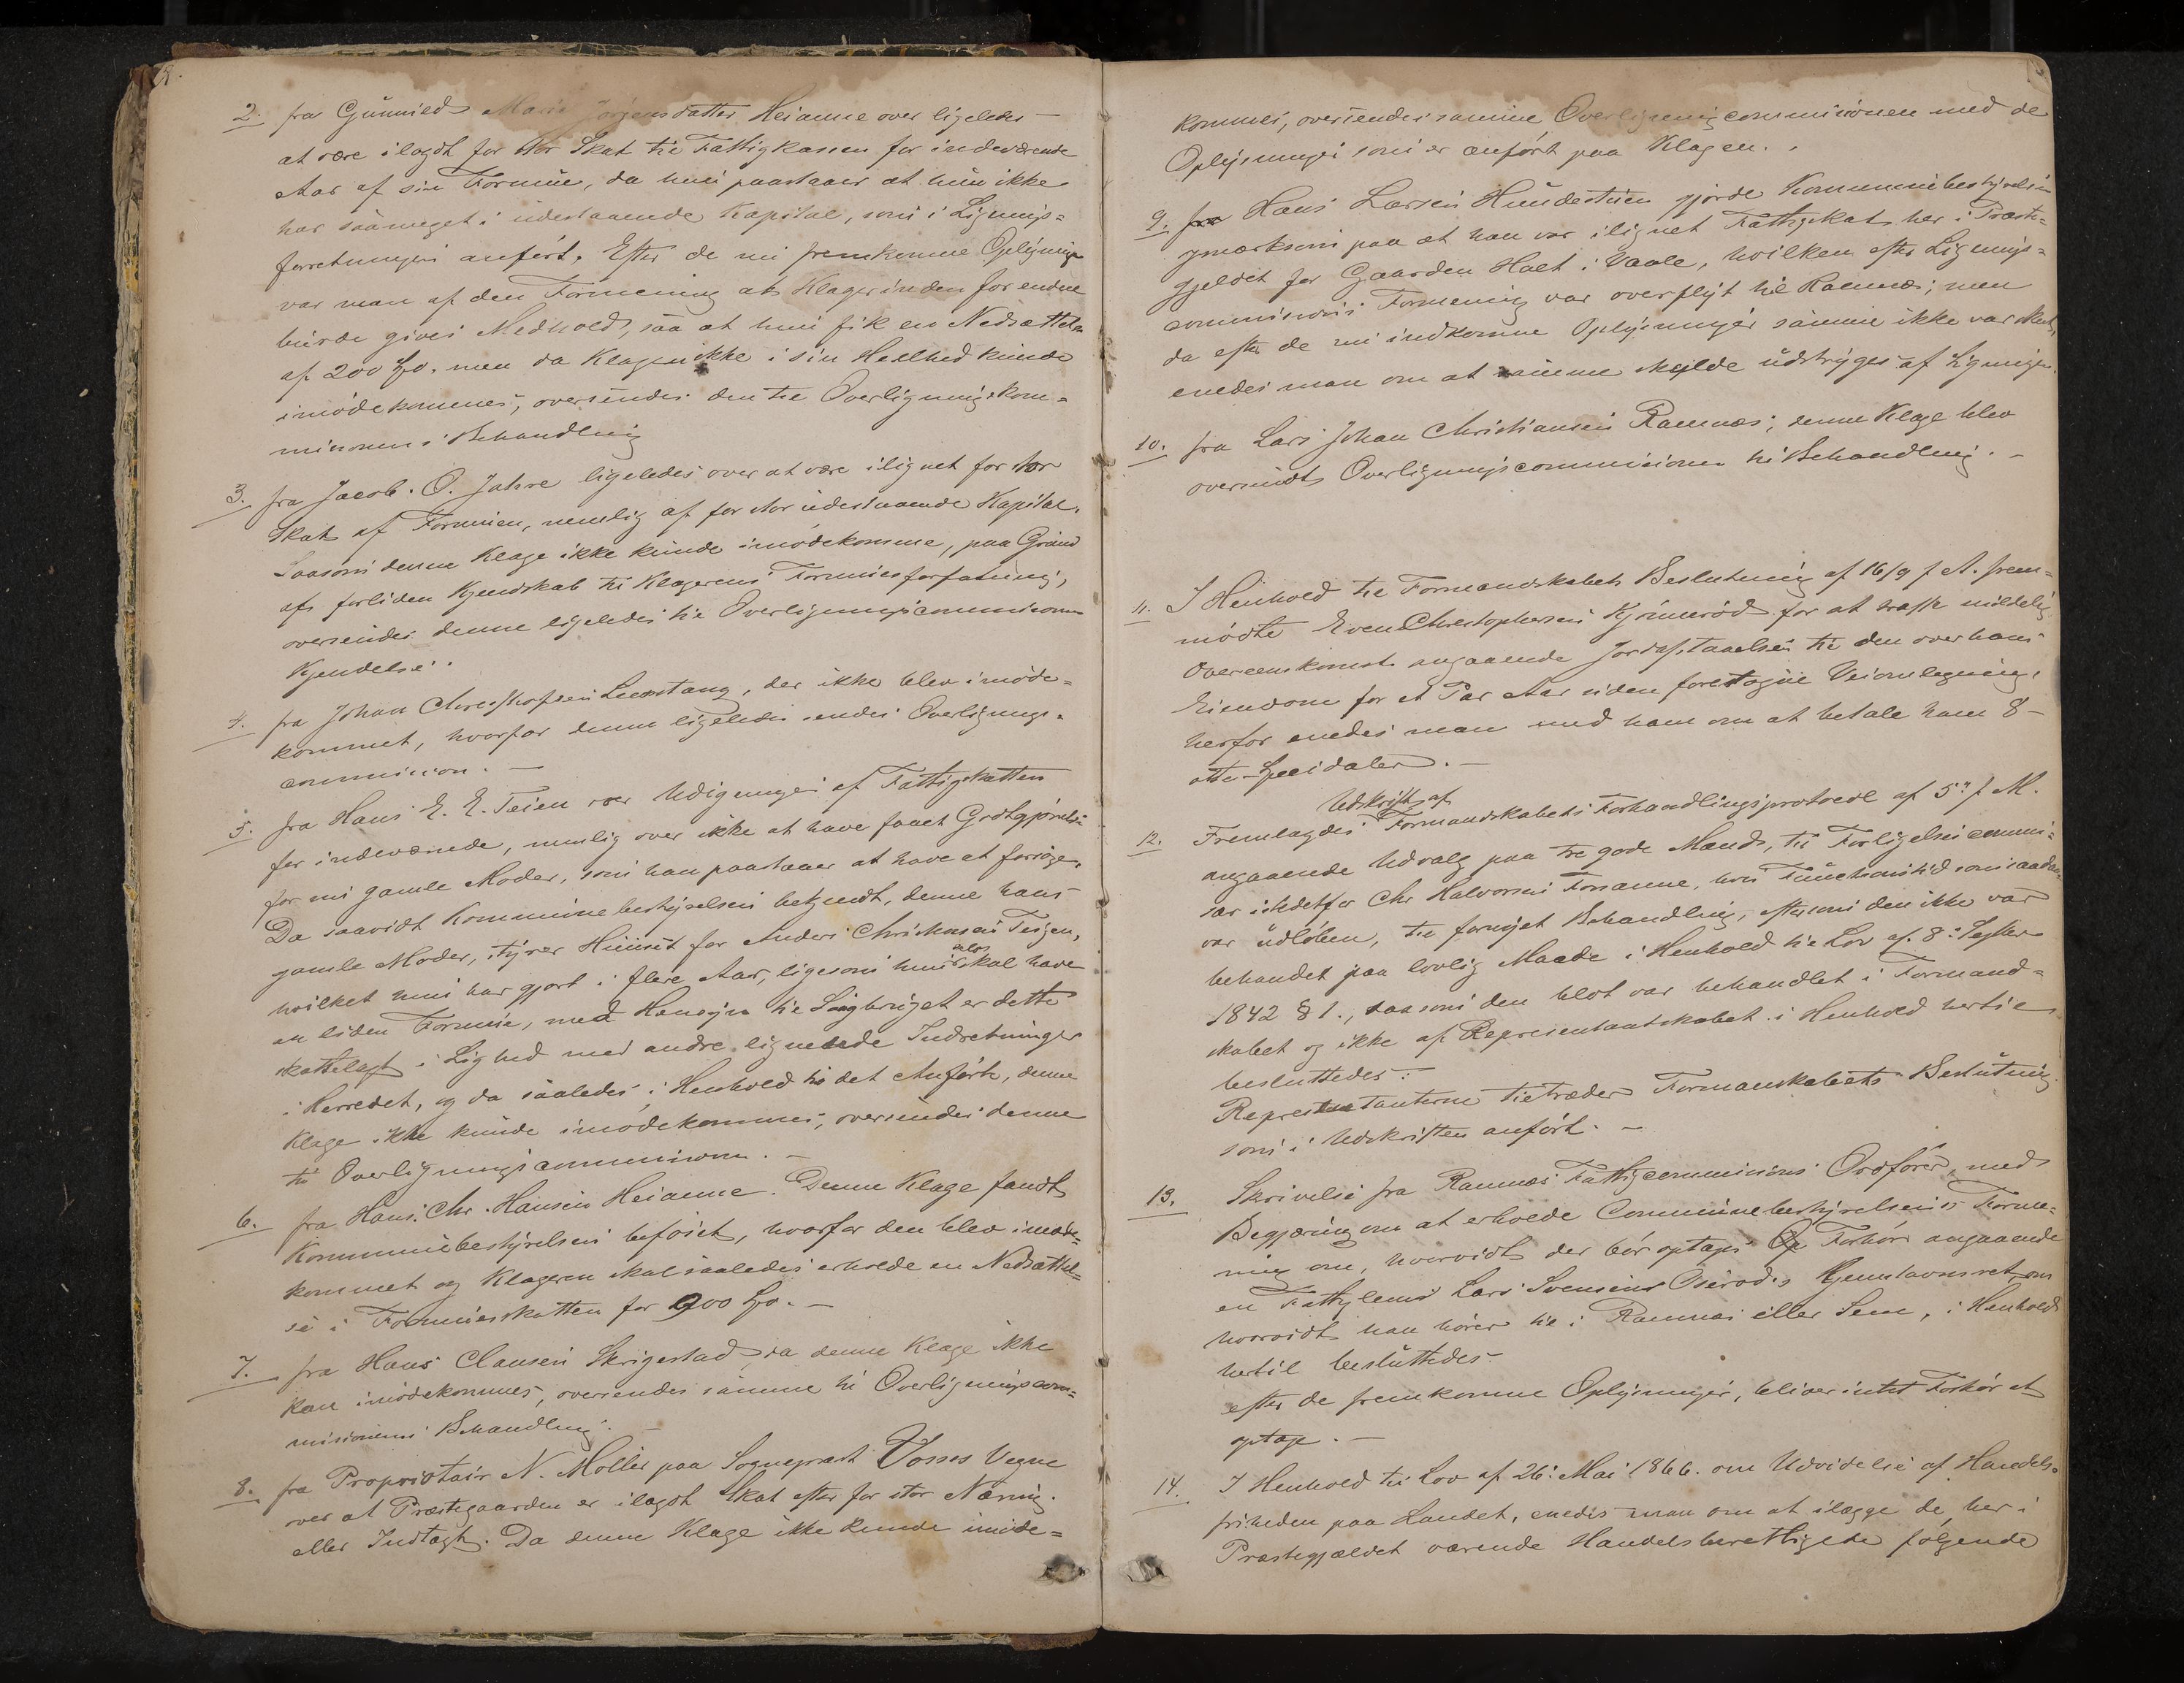 2. fra Gunnild Marie Jørgensdatter Heianne over ligeledes -
at være ilagdt for stor Skat til Fattigkassen for indeværende
Aar af sin Formue, da hun paastaaer at hun ikke
har saameget i udestaaende Kapital, som i Lignings-
forretningen anført. Efter de nu fremkomne Oplysninger
var man af den Formening at Klagerinden for endeel
burde gives Medhold, saa at hun fik en Nedsættelse
af 200 Spd. men da Klagen ikke i sin Heelhed kunde
imødekommes, oversendes den til Overligningskom-
missionens Behandling
3. fra Jacob. O. Jahre ligeledes over at være ilignet for stor
Skat af Formuen, nemlig af for stor udestaaende Kapital.
Saasom denne Klage ikke kunde imødekomme, paa Grund
af forliden Kjendskab til Klagerens Formuesforfatning,
oversendes denne ligeledes til Overligningscommissionens
Kjendelse.
4. fra Johan Christophersen Linnestang, der ikke blev imøde-
kommet, hvorfor denne ligeledes sendes Overlignings-
commission. -
5. fra Hans E. E. Teien over Udligningen af Fattigskatten
for indeværende, nemlig over ikke at have faaet Godtgjørelse
for sin gamle Moder, som han paastaaer at have at forsørge.
Da saavidt Kommunebestyrelsen bekjendt, denne hans
gamle Moder, styrer Huuset for Anders Christensen Teigen,
hvilket hun har gjort i flere Aar, ligesom hun ogs. skal have
en liden Formue, med Hensyn til Sagbruget er dette
skattelagt i Lighed med andre lignende Indretninger
i Herredet, og da saaledes i Henhold til det Anførte, denne
Klage ikke kunde imødekommes, oversendes denne
til Overligningscommissionen. -
6. fra Hans. Chr. Hansen Heianne. Denne Klage fandt
Kommunebestyrelsen beføiet, hvorfor den blev imøde-
kommet og Klageren skal saaledes erholde en Nedsættel-
se i Formuesskatten for 900 Spd. -
7. fra Hans Clausen Skrigestad da denne Klage ikke
kan imødekommes, oversendes samme til Overligningscom-
missionens Behandling. -
8. fra Proprietair N. Møller paa Sogneprest Vosses Vegne
over at Præstegaarden er ilagdt Skat efter for stor Næring.
eller Indtægt. Da denne Klage ikke kunde imøde-
kommes, oversendes samme Overligningscommissionen med de
Oplysninger som er anført paa Klagen. .
9. fra Hans Larsen Hundestuen gjorde Kommunebestyrelsen
opmærksom paa at han var ilignet Fattigskat her i Præste-
gjeldet for Gaarden Holt i Vaale, hvilken efter Lignings-
commissions Formening var overflyt til Ramnæs; men
da efter de nu indkomne Oplysninger samme ikke var skeet,
enedes man om at samme skulde udstryges af Ligningen.
10. fra Lars Johan Christiansen Ramnæs; denne Klage blev
oversendt Overligningscommissionen til Behandling. -
11. I Henhold til Formandskabets Beslutning af 16/9 f. A. frem-
mødte Even Christophersen Kjønnerød for at træffe mindelig
Overeenskomst angaaende Jordafstaaelsen til den over hans
Eiendom for et Par Aar siden foretagne Veiomlegning,
herfor enedes man med ham om at betale ham 8 -
otte Speciedaler. -
Udskrift af
12. Fremlagdes Formandskabets Forhandlingsprotocol af 5te f. M.
angaaende Udvalg paa tre gode Mænd, til Forligelsescommi-
sær istedetfor Chr Halvorsen Forsanne, hvis Functionstid som saadan
var udløben, til fornyet Behandling, eftersom den ikke var
behandlet paa lovlig Maade i Henhold til Lov af 8de Septbr
1842 § 1., saasom den blot var behandlet i Formand-
skabet og ikke af Representantskabet i Henhold hertil
besluttedes:
Representanterne tiltræder Formanskabets Beslutning
som i Udskriften anført. -
13. Skrivelse fra Ramnæs Fattigcommissions Ordfører, med
Begjæring om at erholde Communebestyrelsens Forme-
ning om, hvorvidt der bør optages Forhør angaaende
en Fattiglems Lars Svensens Oserøds Hjemstavnsret, om
hvorvidt han hører til i Ramnæs eller Sem, i Henhold
hertil besluttedes.
efter de fremkomne Oplysninger, bliver intet Forhør at
optage. -
14. I Henhold til Lov af 26de Mai 1866. om Udvidelse af Handels-
friheden paa Landet, enedes man om at ilægge de, her i
Præstegjældet værende Handelsberettigede følgende